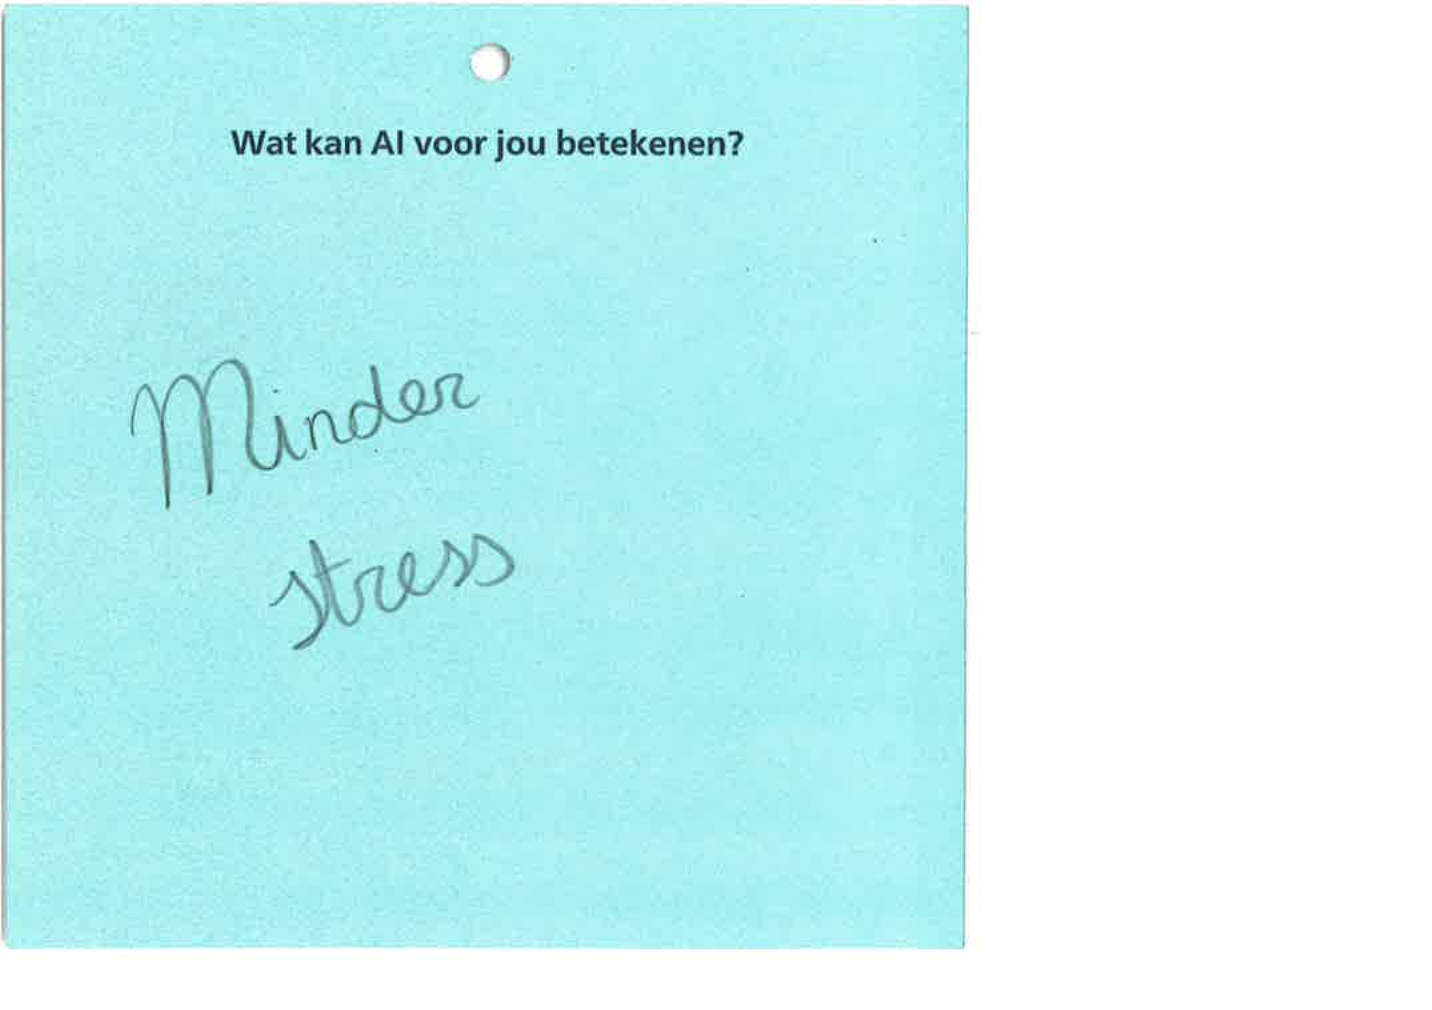 Wat kan AI voor jou betekenen?
Minder
stress